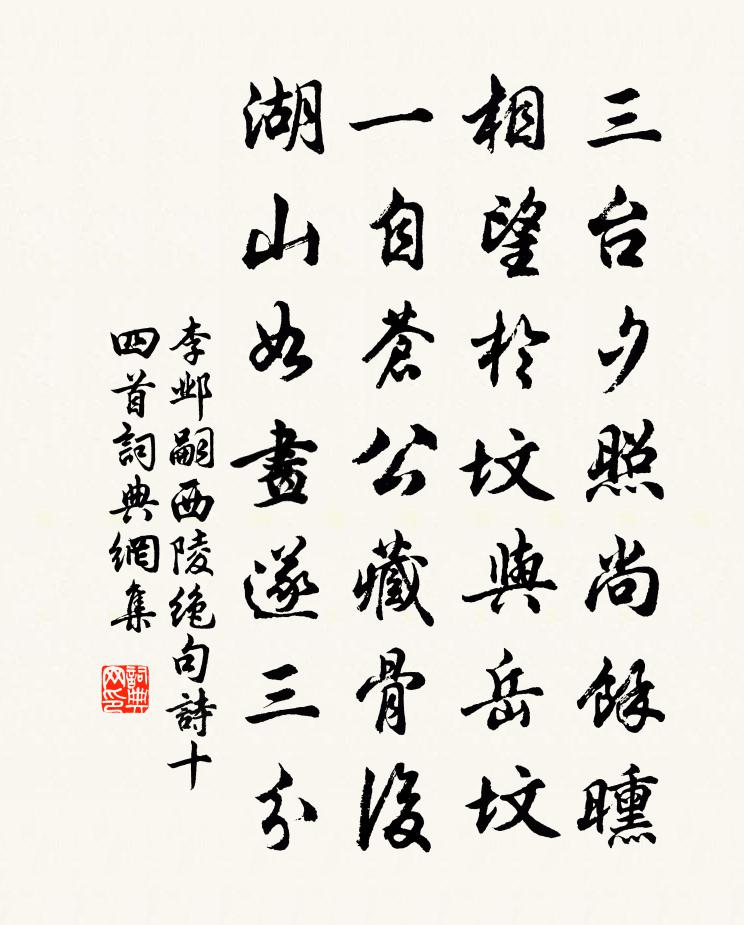 三台夕照尚餘曛
相望於坟與岳坟
一自蒼公藏骨後
湖山如畫遂三分
李邺嗣西陵絶句詩十
四首詞典網集
詞典网印